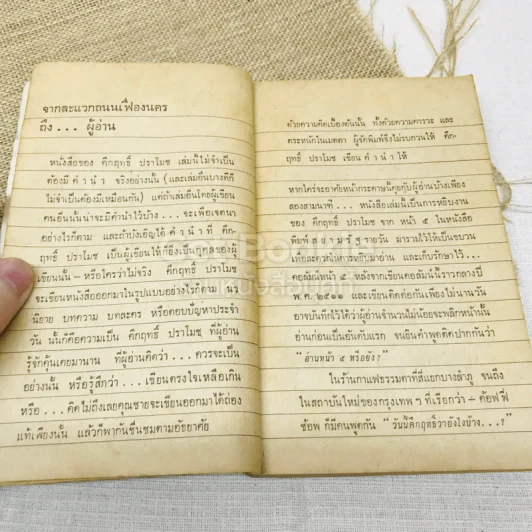 จากละแวกถนนเฟื่องนคร
ถึง... ผู้อ่าน
หนังสือของ คึกฤทธิ์ ปราโมช เล่มนี้ไม่จำเป็น
ต้องมี คำนำ จริงอย่างนั้น (และเล่มอื่นบางทีก็
ไม่จำเป็นต้องมีเหมือนกัน) แต่ถ้าเล่มอื่นโดยผู้เขียน
คนอื่นนั้นน่าจะมีคำนำไว้บ้าง... จะเพื่อเจตนา
อย่างไรก็ตาม และถ้าบังเอิญได้ คำนำ ที่ คึก-
ฤทธิ์ ปราโมช เป็นผู้เขียนให้ก็ยิ่งเป็นกุศลของผู้
เขียนนั้น – หรือใครว่าไม่จริง คึกฤทธิ์ ปราโมช
จะเขียนหนังสือออกมาในรูปแบบอย่างไรก็ตาม นว
นิยาย บทความ บทละคร หรือตอบปัญหาประจำ
วัน นั้นก็คือความเป็น คึกฤทธิ์ ปราโมช ที่ผู้อ่าน
รู้จักคุ้นเคยมานาน ที่ผู้อ่านคิดว่า... ควรจะเป็น
อย่างนั้น หรือรู้สึกว่า... เขียนตรงใจเหลือเกิน
หรือ... คิดไม่ถึงเลยคุณชายจะเขียนออกมาได้ถ่อง
แท้เพียงนั้น แล้วก็พากันชื่นชมตามอัธยาศัย
ด้วยความคิดเบื้องต้นนั้น ทั้งด้วยความคารวะ และ
ตระหนักในเมตตา ผู้จัดพิมพ์จึงไม่รบกวนให้ คึก-
ฤทธิ์ ปราโมช เขียน คำนำ ให้
หากใคร่จะอาศัยหน้ากระดาษนี้คุยกับผู้อ่านบ้างเพียง
สองสามนาที... หนังสือเล่มนี้เป็นการหยิบงาน
ของ คึกฤทธิ์ ปราโมช จาก หน้า ๕ ในหนังสือ
พิมพ์ สยามรัฐรายวัน มารวมไว้ให้เป็นขบวน
เพื่อสะดวกในการหยิบมาอ่าน และเก็บรักษาไว้...
คอลัมน์หน้า ๕ หลังจากเขียนคอลัมน์ราวกลางปี
พ.ศ. ๒๕๑๑ และเขียนติดต่อกันเพียงไม่นานวัน
อาจบันทึกไว้ได้ว่าผู้อ่านจำนวนไม่น้อยจะพลิกหน้านั้น
อ่านก่อนเป็นอันดับแรก จนเป็นคำพูดติดปากกันว่า
“อ่านหน้า ๕ หรือยัง?”
ในร้านกาแฟธรรมดาที่สี่แยกบางลำภู จนถึง
ในสถาบันใหม่ของกรุงเทพฯ ที่เรียกว่า – ค้อฟฟี่
ช้อพ ก็มีคนพูดกัน “วันนี้คึกฤทธิ์ว่ายังไงบ้าง...?”